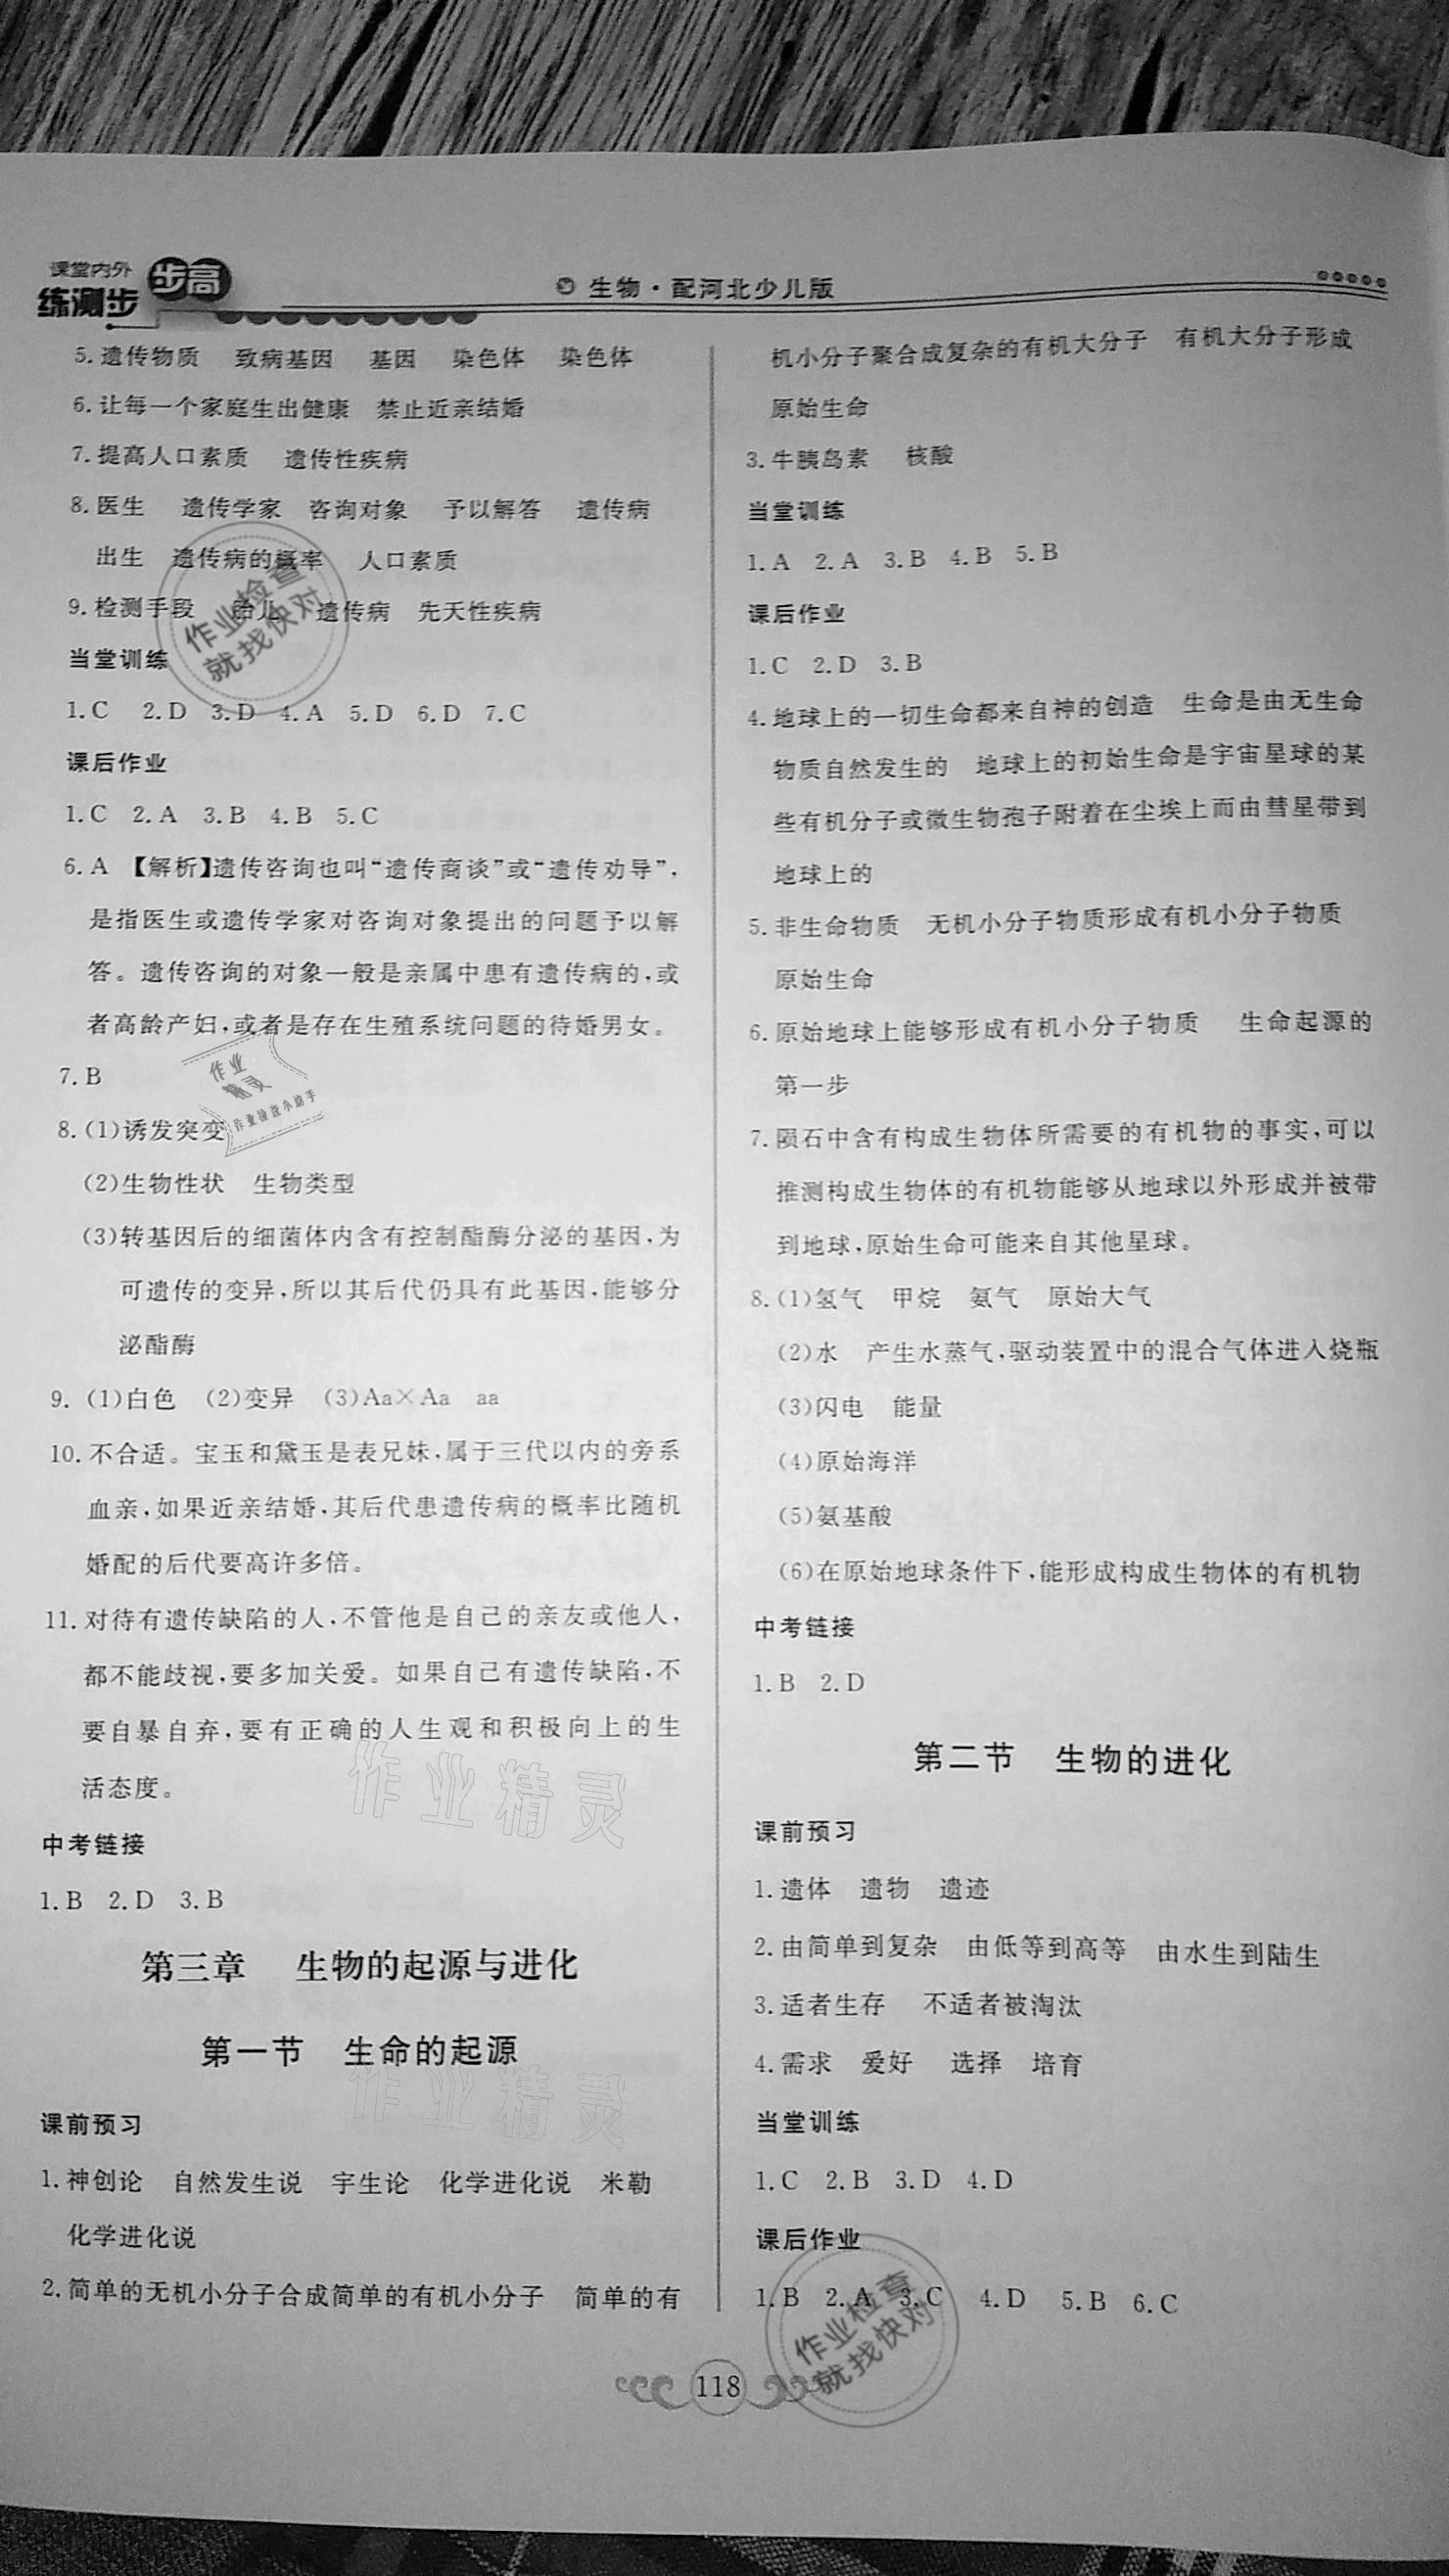 课堂内外
练测步
步高
生物·配河北少儿版
5.遗传物质 致病基因 基因 染色体 染色体
6.让每一个家庭生出健康 禁止近亲结婚
7.提高人口素质 遗传性疾病
8.医生 遗传学家 咨询对象 予以解答 遗传病
出生 遗传病的概率 人口素质
9.检测手段 胎儿 遗传病 先天性疾病
当堂训练
1.C 2.D 3.D 4.A 5.D 6.D 7.C
课后作业
1.C 2.A 3.B 4.B 5.C
6.A 【解析】遗传咨询也叫“遗传商谈”或“遗传劝导”,
是指医生或遗传学家对咨询对象提出的问题予以解
答。遗传咨询的对象一般是亲属中患有遗传病的,或
者高龄产妇,或者是存在生殖系统问题的待婚男女。
7.B
8.(1)诱发突变
(2)生物性状 生物类型
(3)转基因后的细菌体内含有控制酯酶分泌的基因,为
可遗传的变异,所以其后代仍具有此基因,能够分
泌酯酶
9.(1)白色 (2)变异 (3)Aa×Aa aa
10.不合适。宝玉和黛玉是表兄妹,属于三代以内的旁系
血亲,如果近亲结婚,其后代患遗传病的概率比随机
婚配的后代要高许多倍。
11.对待有遗传缺陷的人,不管他是自己的亲友或他人,
都不能歧视,要多加关爱。如果自己有遗传缺陷,不
要自暴自弃,要有正确的人生观和积极向上的生
活态度。
中考链接
1.B 2.D 3.B
第三章 生物的起源与进化
第一节 生命的起源
课前预习
1.神创论 自然发生说 宇生论 化学进化说 米勒
化学进化说
2.简单的无机小分子合成简单的有机小分子 简单的有
机小分子聚合成复杂的有机大分子 有机大分子形成
原始生命
3.牛胰岛素 核酸
当堂训练
1.A 2.A 3.B 4.B 5.B
课后作业
1.C 2.D 3.B
4.地球上的一切生命都来自神的创造 生命是由无生命
物质自然发生的 地球上的初始生命是宇宙星球的某
些有机分子或微生物孢子附着在尘埃上而由彗星带到
地球上的
5.非生命物质 无机小分子物质形成有机小分子物质
原始生命
6.原始地球上能够形成有机小分子物质 生命起源的
第一步
7.陨石中含有构成生物体所需要的有机物的事实,可以
推测构成生物体的有机物能够从地球以外形成并被带
到地球,原始生命可能来自其他星球。
8.(1)氢气 甲烷 氨气 原始大气
(2)水 产生水蒸气,驱动装置中的混合气体进入烧瓶
(3)闪电 能量
(4)原始海洋
(5)氨基酸
(6)在原始地球条件下,能形成构成生物体的有机物
中考链接
1.B 2.D
第二节 生物的进化
课前预习
1.遗体 遗物 遗迹
2.由简单到复杂 由低等到高等 由水生到陆生
3.适者生存 不适者被淘汰
4.需求 爱好 选择 培育
当堂训练
1.C 2.B 3.D 4.D
课后作业
1.B 2.A 3.C 4.D 5.B 6.C
118
作业检查
就找快对
作业
精灵
作业检查小助手
作业精灵
作业精灵
作业检查
就找快对